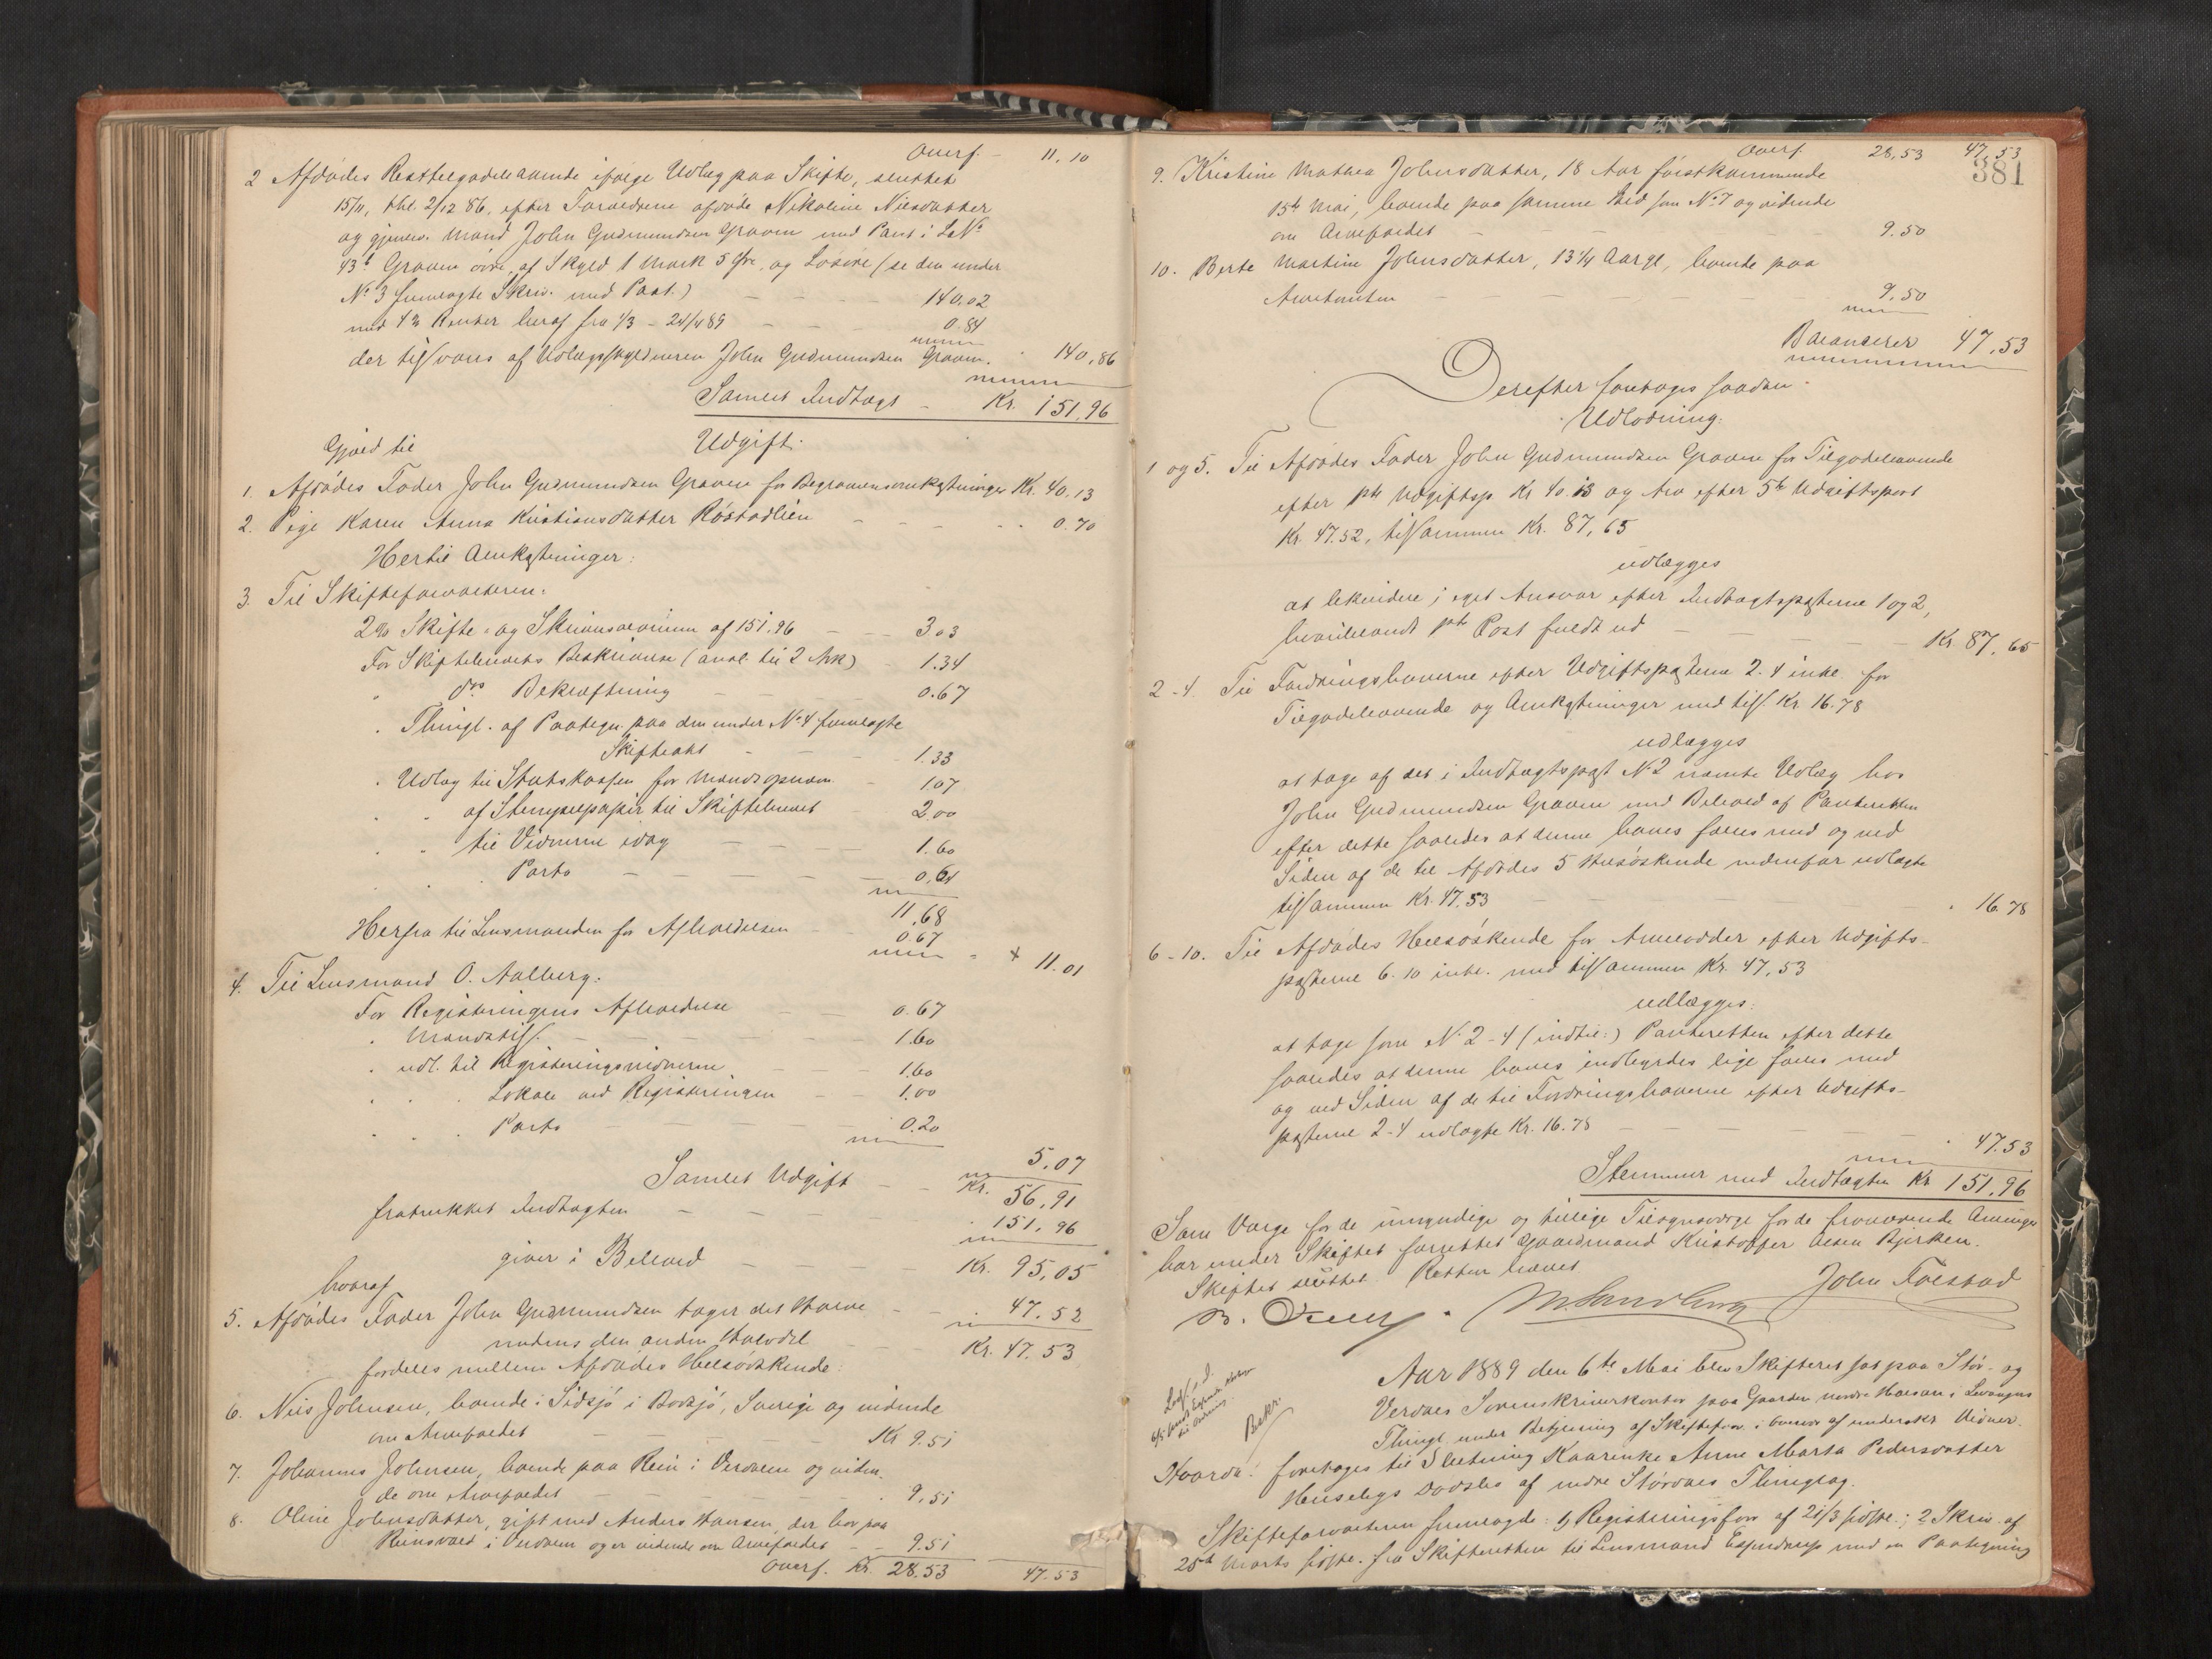 Overf. – 11,10
2 Afdødes Resttilgodehavende ifølge Udlæg paa Skifte, sluttet
15/11, thl. 2/12 86, efter Forældrene afdøde Nikoline Nilsdatter
og gjenlev. Mand John Gudmundsen Graven med Pant i LNo
43b Graven øvre, af Skyld 1 Mark 5 Øre, og Løsøre (se den under
No 3 fremlagte Skriv. med Paat.) 140.02
med 4% Renter heraf fra 1/3 – 24/4 89 0.84
der tilsvares af Udlægsskyldneren John Gudmundsen Graven. 140,86
Samlet Indtægt – Kr. 151,96
Udgift.
Gjæld til
1. Afdødes Fader John Gudmundsen Graven for Begravelsesomkostninger Kr. 40,13
2. Pige Karen Anna Kristiansdatter Røstadlien 0.70
Hertil Omkostninger:
3. Til Skifteforvalteren:
2% Skifte- og Skriversalarium af 151,96 – 303
For Skiftebrevets Beskrivelse (anal. til 2 Ark) 1.34
" do Bekræftning 0.67
" Thingl. af Paategn. paa den under No 4 fremlagte
Skifteakt 1.33
" Udlæg til Statskassen for Mandsopnævn. 107
" " af Stempelpapir til Skiftebrevet 2.00
" " til Vidnerne idag 1.60
" " Porto 0.64
11,68
Herfra til Lensmanden for Afholdelsen 0.67
11.01
4. Til Lensmand O. Aalberg:
For Registreringens Afholdelse 0.67
" Mandstils. 1.60
" udl. til Registreringsvidnerne 1.60
" " Lokale ved Registreringen 1.00
" " Porto 0.20
5.07
Samlet Udgift Kr. 56,91
fratrukket Indtægten 151.96
giver i Behold Kr. 95,05
hvoraf
5. Afdødes Fader John Gudmundsen tager det Halve 47.52
medens den anden Halvdel Kr. 47,53
fordeles mellem Afdødes Helsødskende:
6. Nils Johnsen, boende i Sidsjø i Bodsjø, Sverige og vidende
om Arvefaldet Kr 9.51
7. Johannes Johnsen, boende paa Rein i Verdalen og viden-
de om Arvefaldet 9,51
8. Oline Johnsdatter, gift med Anders Hansen, der bor paa
Reinsvald i Verdalen og er vidende om Arvefaldet 9.51
Overf. Kr. 28.53 47.53
Overf. 28,53 47,53
381
9. Kristine Mathea Johnsdatter, 18 Aar førstkommende
15de Mai, boende paa samme Sted som No 7 og vidende
om Arvefaldet 9.50
10. Berte Martine Johnsdatter, 13 1/4 Aargl, boende paa
Arvetomten 9,50
Balancerer 47,53
Derefter foretoges saadan
Udlodning:
1 og 5. Til Afdødes Fader John Gudmundsen Graven for Tilgodehavende
efter 1ste Udgiftsp. Kr 40.13 og Arv efter 5te Udgiftspost
Kr. 47.52, tilsammen Kr. 87,65
udlægges
at likvidere i eget Ansvar efter Indtægtsposterne 1 og 2,
hvoriblandt 1ste Post fuldt ud Kr 87,65
2-4. Til Fordringshaverne efter Udgiftsposterne 2-4 inkl. for
Tilgodehavende og Omkostninger med tils. Kr. 16.78
udlægges
at tage af det i Indtægtspost No 2 nævnte Udlæg hos
John Gudmundsen Graven med Behold af Panteretten
efter dette saaledes at denne haves fælles med og ved
Siden af de til Afdødes 5 Helsøskende nedenfor udlagte
tilsammen Kr. 47.53 16.78
6-10. Til Afdødes Helsøskende for Arvelodder efter Udgifts-
posterne 6-10 inkl. med tilsammen Kr. 47,53
udlægges:
at tage som No 2-4 (indtil:) Panteretten efter dette
saaledes at denne haves indbyrdes lige fælles med
og ved Siden af de til Fordringshaverne efter Udgifts-
posterne 2-4 udlagte Kr. 16.78 47.53
Stemmer med Indtægten Kr 151,96
Som Værge for de umyndige og tillige Tilsynsværge for de fraværende Arvinger
har under Skiftet forrettet Gaardmand Kristoffer Olsen Bjerken.
Skiftet sluttet. Retten hævet.
M Sandberg John Folstad
Aar 1889 den 6te Mai blev Skifteret sat paa Stør- og
Verdals Sorenskriverkontor paa Gaarden nordre Halsan i Levangers
Thingl. under Betjening af Skifteforv. i Overvær af underskr. Vidner.
Hvorda: foretoges til Slutning Kaarenke Anne Marta Pedersdatter
Huselegs Dødsbo af nedre Stördals Thinglag.
Skifteforvalteren fremlagde: 1) Registreringsforr. af 21/3 sidstl.; 2 Skriv. af
25de Marts sidstl. fra Skifteretten til Lensmand Espndrup med en Paategning
Bekr.